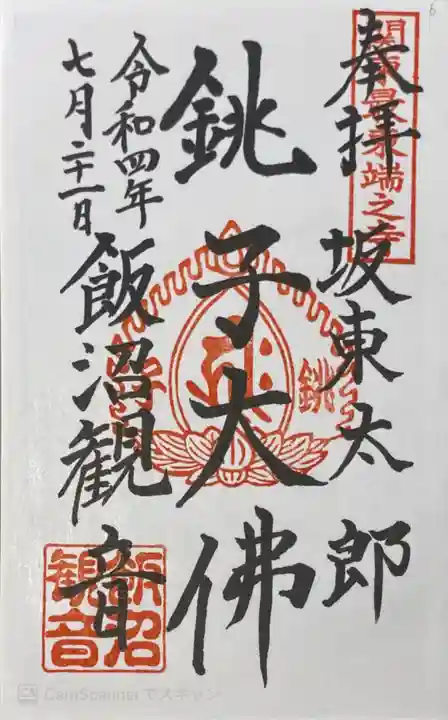 奉拝
坂東太郎
関東最東端之寺
銚子大佛
銚子
令和四年
七月二十一日
飯沼観音
飯沼観音
CamScanner でスキャン
6